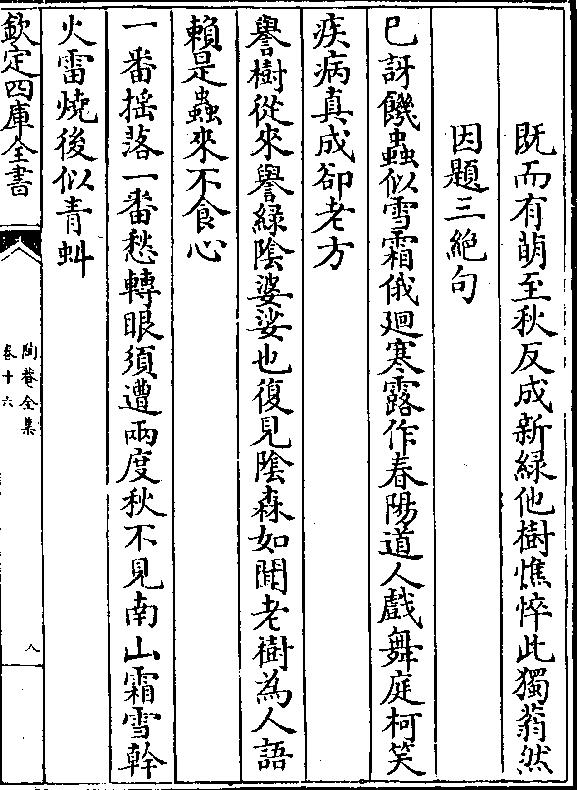 既而有萌至秋反成新緑他樹憔悴此獨蓊然
因題三絶句
已訝饑蟲似雪霜俄廻寒露作春陽道人戲舞庭柯笑
疾病真成卻老方
譽樹從來譽緑陰婆娑也復見陰森如聞老樹為人語
賴是蟲來不食心
一番揺落一番愁轉眼須遭兩度秋不見南山霜雪幹
火雷燒後似青虯
欽定四庫全書
陶菴全集
卷十六
八